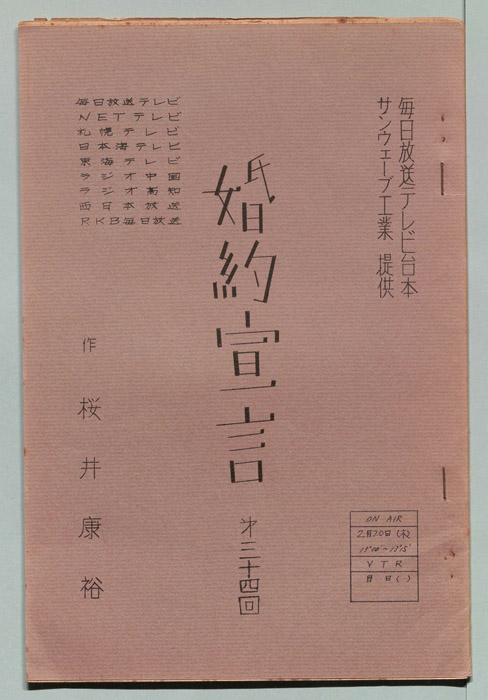 毎日放送テレビ台本
サンウェーブ工業 提供
婚約宣言
第三十四回
毎日放送テレビ
NETテレビ
札幌テレビ
日本海テレビ
東海テレビ
ラジオ中国
ラジオ高知
西日本放送
RKB毎日放送
作 桜井康裕
ON AIR
2月20日(木)
VTR
月 日( )